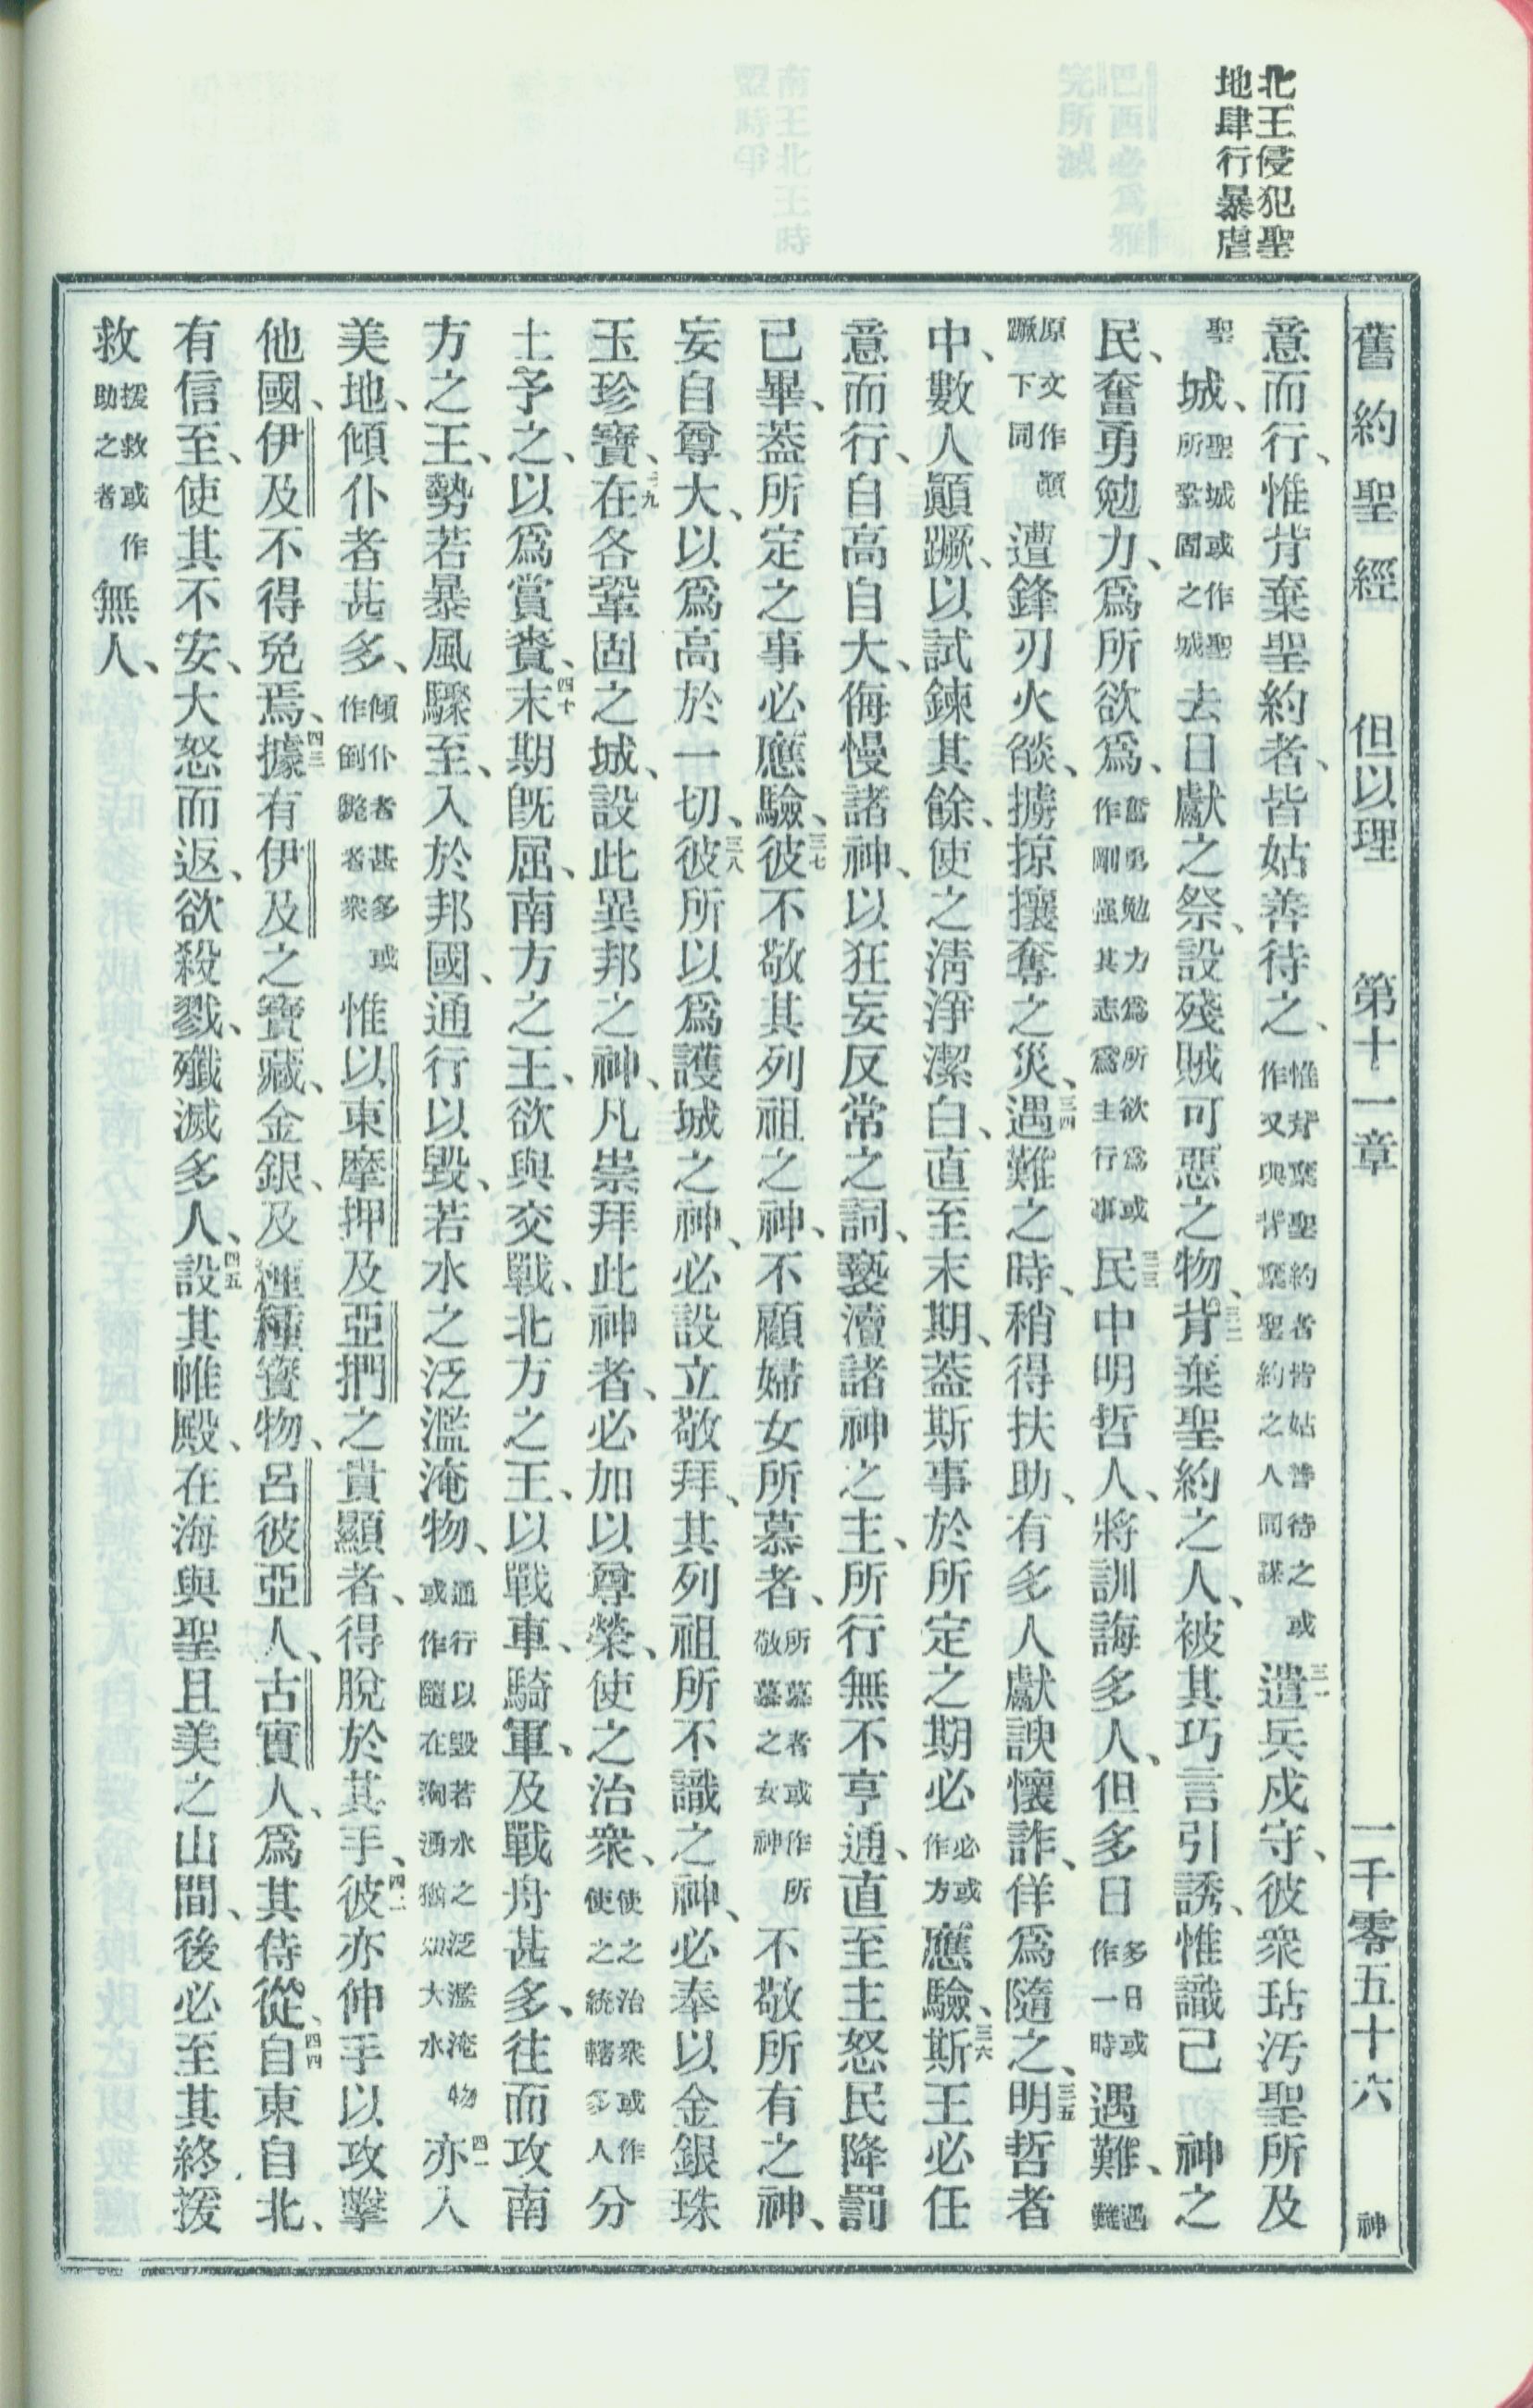 北王侵犯聖
地肆行暴虐
舊約聖經 但以理 第十一章 一千零五十六 神
意而行、惟背棄聖約者、皆姑善待之、惟背棄聖約者皆姑善待之或作又與背棄聖約之人同謀三一遣兵戍守、彼衆玷汚聖所及
聖城、聖城或作聖所鞏固之城去日獻之祭、設殘賊可惡之物、三二背棄聖約之人、被其巧言引誘、惟識己 神之
民、奮勇勉力、爲所欲爲、奮勇勉力爲所欲爲或作剛强其志爲主行事三三民中明哲人、將訓誨多人、但多日多日或作一時遇難、遇難
原文作顚蹶下同遭鋒刃火燄、擄掠攘奪之災、三四遇難之時、稍得扶助、有多人獻諛懷詐、佯爲隨之、三五明哲者
中、數人顚蹶、以試鍊其餘、使之淸淨潔白、直至末期、蓋斯事於所定之期必必或作方應驗、三六斯王必任
意而行、自高自大、侮慢諸神、以狂妄反常之詞、褻瀆諸神之主、所行無不亨通、直至主怒民降罰
已畢、蓋所定之事必應驗、三七彼不敬其列祖之神、不顧婦女所慕者、所慕者或作所敬慕之女神不敬所有之神、
妄自尊大、以爲高於一切、三八彼所以爲護城之神、必設立敬拜、其列祖所不識之神、必奉以金銀珠
玉珍寶、三九在各鞏固之城、設此異邦之神、凡崇拜此神者、必加以尊榮、使之治衆、使之治衆或作使之統轄多人分
土予之、以爲賞賚、四十末期旣屆、南方之王、欲與交戰、北方之王、以戰車、騎軍、及戰舟甚多、往而攻南
方之王、勢若暴風驟至、入於邦國、通行以毀、若水之泛濫淹物、通行以毀若水之泛濫淹物或作隨在洶湧猶如大水四一亦入
美地、傾仆者甚多、傾仆者甚多或作倒斃者衆惟以東摩押及亞捫之貴顯者、得脫於其手、四二彼亦伸手以攻擊
他國、伊及不得免焉、四三據有伊及之寶藏、金銀、及種種寶物、呂彼亞人、古實人、爲其侍從、四四自東自北、
有信至、使其不安、大怒而返、欲殺戮、殲滅多人、四五設其帷殿、在海與聖且美之山間、後必至其終、援
救援救或作助之者無人、